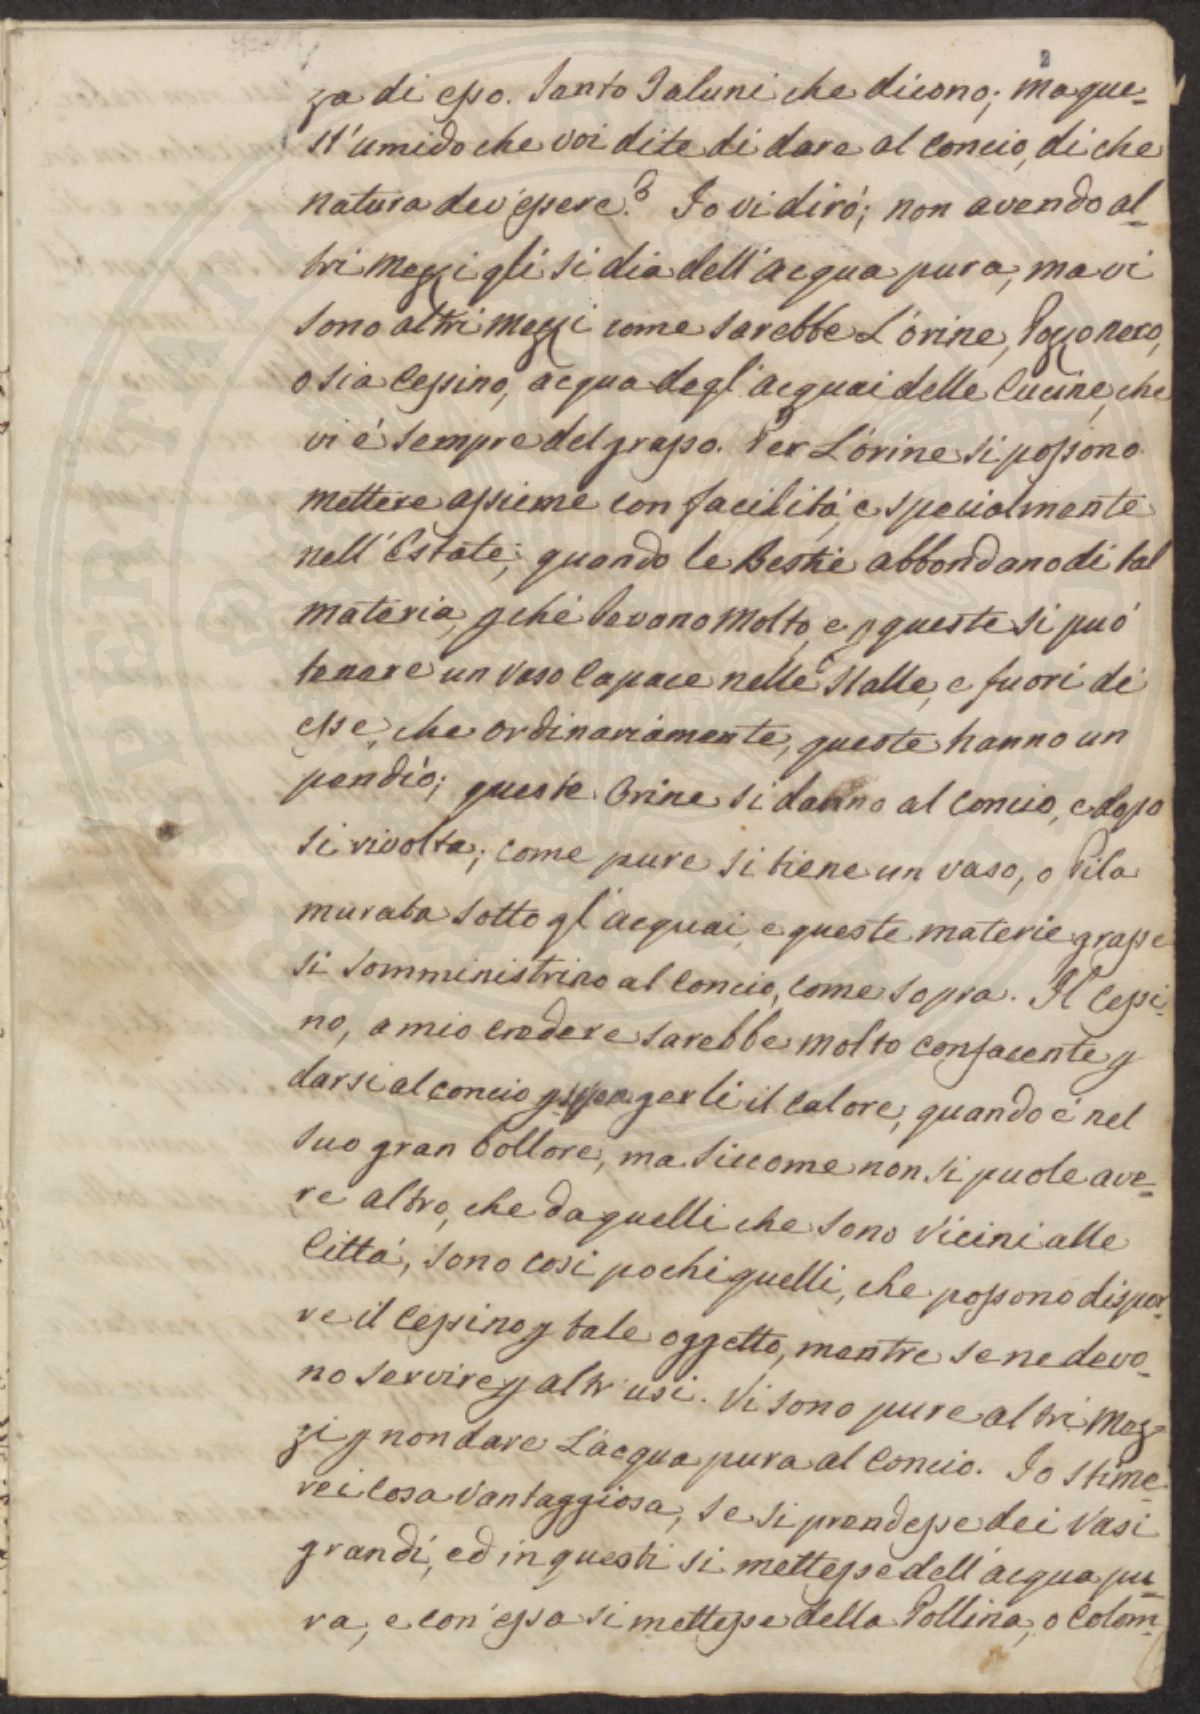 2
za di esso. Santo Saluni che dicono; ma que-
st'umido che voi dite di dare al Concio, di che
natura dev'essere? Io vi dirò; non avendo al-
tri mezzi gli si dia dell'acqua pura, ma vi
sono altri mezzi come sarebbe L'orine, Pozzo nero,
o sia Cessino, acqua degl'acquai delle Cucine, che
vi é sempre del grasso. Per L'orine si possono
mettere assieme con facilità, e specialmente
nell'Estate; quando le Bestie abbondano di tal
materia, pché bevono molto, e p queste si può
tenere un vaso Capace nelle Stalle, e fuori di
esse, che ordinariamente, queste hanno un
pendio; queste Orine si danno al Concio, e dopo
si rivolta; come pure si tiene un vaso, o Pila
murata sotto gl'acquai, e queste materie grasse
si somministrino al Concio, come sopra. Il Cessi-
no, a mio credere sarebbe molto confacente p
darsi al concio p spengerli il calore, quando é nel
suo gran bollore, ma siccome non si puole ave-
re altro, che da quelli che sono vicini alle
Città, sono così pochi quelli, che possono dispor-
re il Cessino p tale oggetto, mentre se ne devo-
no servire p altr'usi. Vi sono pure altri Mez-
zi p non dare L'acqua pura al Concio. Io stime-
rei Cosa Vantaggiosa, se si prendesse dei Vasi
grandi, ed in questi si mettesse dell'acqua pu-
ra, e con'essa si mettesse della Pollina, o Colom-